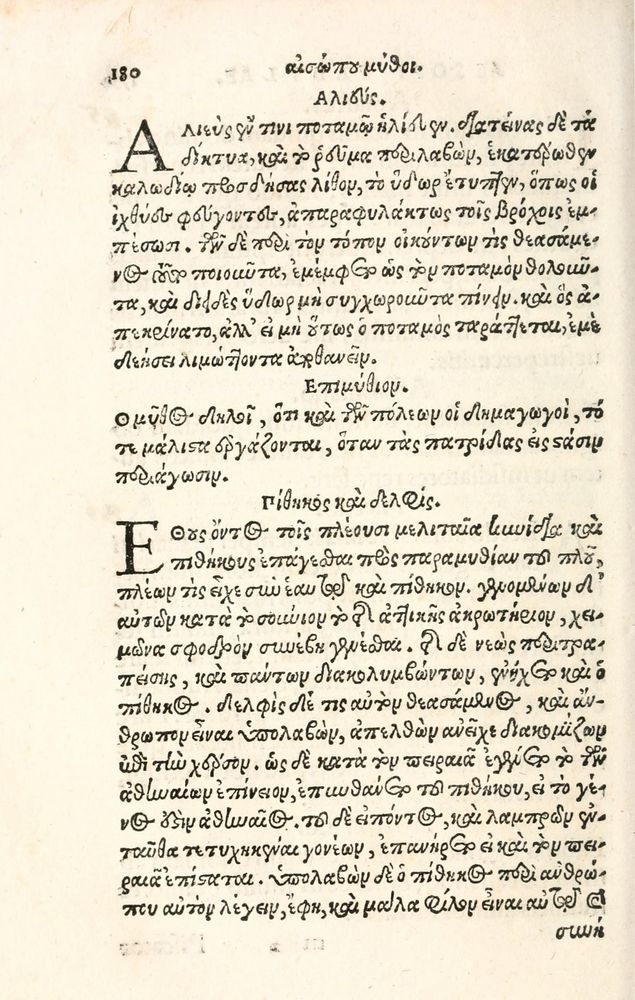 180 αἰσώπου μῦθοι.
Ἁλιεύς.
ΑΛιεὺς ἔν τινι ποταμῷ ἡλίευεν. διατείνας δὲ τὰ
δίκτυα, καὶ τὸ ῥεῦμα περιλαβὼν, ἑκατέρωθεν
καλωδίῳ προσδήσας λίθον, τὸ ὕδωρ ἔτυπτεν, ὅπως οἱ
ἰχθύες φεύγοντες, ἀπαραφυλάκτως τοῖς βρόχοις ἐμ-
πέσωσι. τῶν δὲ περὶ τὸν τόπον οἰκούντων τὶς θεασάμε-
νος τοῦτο ποιοῦντα, ἐμέμφετο ὡς τὸν ποταμὸν θολοῦν-
τα, καὶ διειδὲς ὕδωρ μὴ συγχωροῦντα πίνειν. καὶ ὃς ἀ-
πεκρίνατο, ἀλλ' εἰ μὴ οὕτως ὁ ποταμὸς ταράττεται, ἐμὲ
δεήσει λιμώττοντα ἀποθανεῖν.
Ἐπιμύθιον.
Ὁ μῦθος δηλοῖ, ὅτι καὶ τῶν πόλεων οἱ δημαγωγοὶ, τό
τε μάλιστα ἐργάζονται, ὅταν τὰς πατρίδας εἰς στάσιν
περιάγωσιν.
Πίθηκος καὶ δελφίς.
ΕΘους ὄντος τοῖς πλέουσι μελιταῖα κυνίδια καὶ
πιθήκους ἐπάγεσθαι πρὸς παραμυθίαν τοῦ πλοῦ,
πλέων τὶς εἶχε σὺν ἑαυτῷ καὶ πίθηκον. γενομένων δ'
αὐτῶν κατὰ τὸ σούνιον τὸ τῆς ἀττικῆς ἀκρωτήριον, χει-
μῶνα σφοδρὸν συνέβη γενέσθαι. τῆς δὲ νεὼς περιτρα-
πείσης, καὶ πάντων διακολυμβώντων, ἐνήχετο καὶ ὁ
πίθηκος. δελφὶς δέ τις αὐτὸν θεασάμενος, καὶ ἄν-
θρωπον εἶναι ὑπολαβὼν, ἀπελθὼν ἀνεῖχε διακομίζων
ἐπὶ τὴν χέρσον. ὡς δὲ κατὰ τὸν πειραιᾶ ἐγένετο τὸ τῶν
ἀθηναίων ἐπίνειον, ἐπυνθάνετο τοῦ πιθήκου, εἰ τὸ γέ-
νος ἐστὶν ἀθηναῖος. τοῦ δὲ εἰπόντος, καὶ λαμπρῶν ἐν-
ταῦθα τετυχηκέναι γονέων, ἐπανήρετο εἰ καὶ τὸν πει-
ραιᾶ ἐπίσταται. ὑπολαβὼν δὲ ὁ πίθηκος περὶ ἀνθρώ-
που αὐτὸν λέγειν, ἔφη, καὶ μάλα φίλον εἶναι αὐτῷ καὶ
συνή